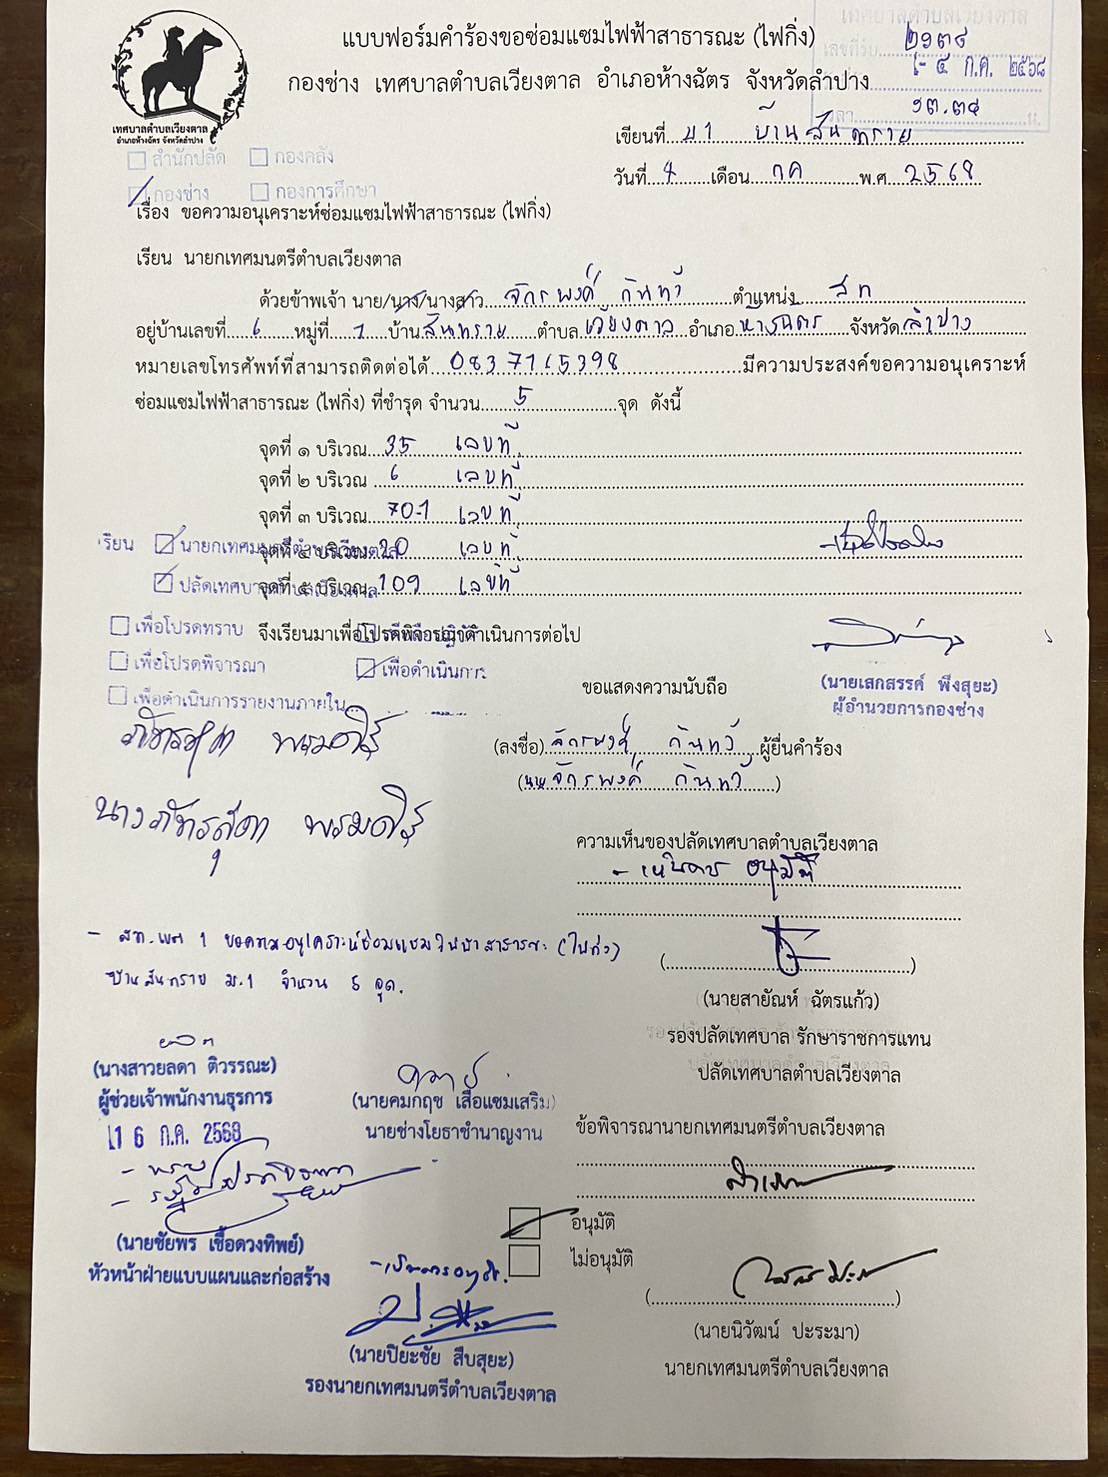 แบบฟอร์มคำร้องขอซ่อมแซมไฟฟ้าสาธารณะ (ไฟกิ่ง)
กองช่าง เทศบาลตำบลเวียงตาล อำเภอห้างฉัตร จังหวัดลำปาง
เทศบาลตำบลเวียงตาล
อำเภอห้างฉัตร จังหวัดลำปาง
เทศบาลตำบลเวียงตาล
เลขที่รับ
- ๔ ก.ค. ๒๕๖๘
เวลา ๑๓.๓๔ น.
เขียนที่ ม 1 บ้านสันทราย
วันที่ 4 เดือน กค พ.ศ 2568
สำนักปลัด กองคลัง
กองช่าง กองการศึกษา
เรื่อง ขอความอนุเคราะห์ซ่อมแซมไฟฟ้าสาธารณะ (ไฟกิ่ง)
เรียน นายกเทศมนตรีตำบลเวียงตาล
ด้วยข้าพเจ้า นาย/นาง/นางสาว จักรพงค์ กันทวี ตำแหน่ง ส ท
อยู่บ้านเลขที่ 6 หมู่ที่ 1 บ้าน สันทราย ตำบล เวียงตาล อำเภอ ห้างฉัตร จังหวัด ลำปาง
หมายเลขโทรศัพท์ที่สามารถติดต่อได้ 0837165398 มีความประสงค์ขอความอนุเคราะห์
ซ่อมแซมไฟฟ้าสาธารณะ (ไฟกิ่ง) ที่ชำรุด จำนวน 5 จุด ดังนี้
จุดที่ ๑ บริเวณ 35 เลขที่
จุดที่ ๒ บริเวณ 6 เลขที่
จุดที่ ๓ บริเวณ 70-1 เลขที่
เรียน นายกเทศมนตรีตำบลเวียงตาล
จุดที่ ๔ บริเวณ 20 เลขที่
ปลัดเทศบาลตำบลเวียงตาล
จุดที่ ๕ บริเวณ 109 เลขที่
เพื่อโปรดทราบ
จึงเรียนมาเพื่อโปรดพิจารณาดำเนินการต่อไป
เพื่อโปรดพิจารณา เพื่อดำเนินการ
เพื่อดำเนินการรายงานภายใน
ขอแสดงความนับถือ
(นายเสกสรรค์ พึงสุยะ)
ผู้อำนวยการกองช่าง
(ลงชื่อ) จักรพงค์ กันทวี ผู้ยื่นคำร้อง
(นาย จักรพงค์ กันทวี)
ความเห็นของปลัดเทศบาลตำบลเวียงตาล
- เห็นควร อนุมัติ
(นายสายัณห์ ฉัตรแก้ว)
รองปลัดเทศบาล รักษาราชการแทน
ปลัดเทศบาลตำบลเวียงตาล
- สท.เขต 1 ขอความอนุเคราะห์ซ่อมแซมไฟฟ้าสาธารณะ (ไฟกิ่ง)
บ้านสันทราย ม.1 จำนวน 5 จุด.
(นางสาวยลดา ติวรรณะ)
ผู้ช่วยเจ้าพนักงานธุรการ
16 ก.ค. 2568
(นายคมกฤช เสือแซมเสริม)
นายช่างโยธาชำนาญงาน
ข้อพิจารณานายกเทศมนตรีตำบลเวียงตาล
- ทราบ
(นายชัยพร เชื้อดวงทิพย์)
หัวหน้าฝ่ายแบบแผนและก่อสร้าง
อนุมัติ
ไม่อนุมัติ
- เห็นควรอนุมัติ.
(นายปิยะชัย สืบสุยะ)
รองนายกเทศมนตรีตำบลเวียงตาล
(นายนิวัฒน์ ปะระมา)
นายกเทศมนตรีตำบลเวียงตาล